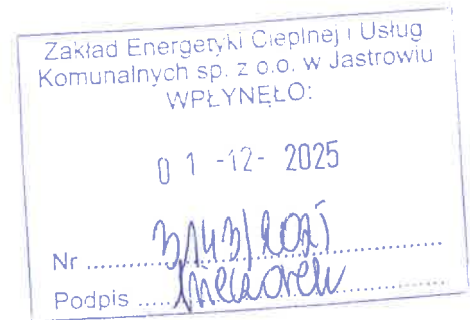 Zakład Energetyki Cieplnej i Usług
Komunalnych sp. z o.o. w Jastrowiu
WPŁYNĘŁO:
01 -12- 2025
Nr 3143/2025
Podpis